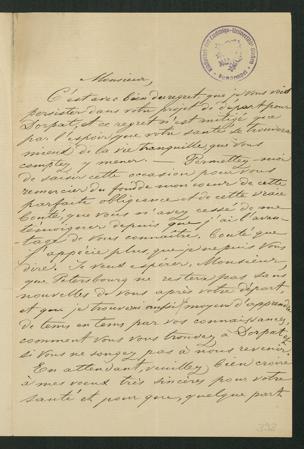 Monsieur,
C'est avec bien du regret que je vous vois
persister dans votre projet de départ pour
Dorpat, et ce regret n'est mitigé que
par l'espoir que votre santé se trouvera
mieux de la vie tranquille que vous
comptez y mener. — Permettez-moi
de saisir cette occasion pour vous
remercier du fond de mon coeur de cette
parfaite obligeance et de cette vraie
bonté, que vous n'avez cessé de me
témoigner depuis que j'ai l'avan-
tage de vous connaître, bonté que
j'apprécie plus que je ne puis vous
dire. Je veux espérer, Monsieur,
que Petersbourg ne restera pas sans
nouvelles de vous après votre départ
et que je trouverai aussi moyen d'apprendre
de tems en tems par vos connaissances,
comment vous vous trouvez à Dorpat et
si vous ne songez pas à nous revenir.
En attendant, veuillez bien croire
à mes voeux très sincères pour votre
santé et pour que, quelque part